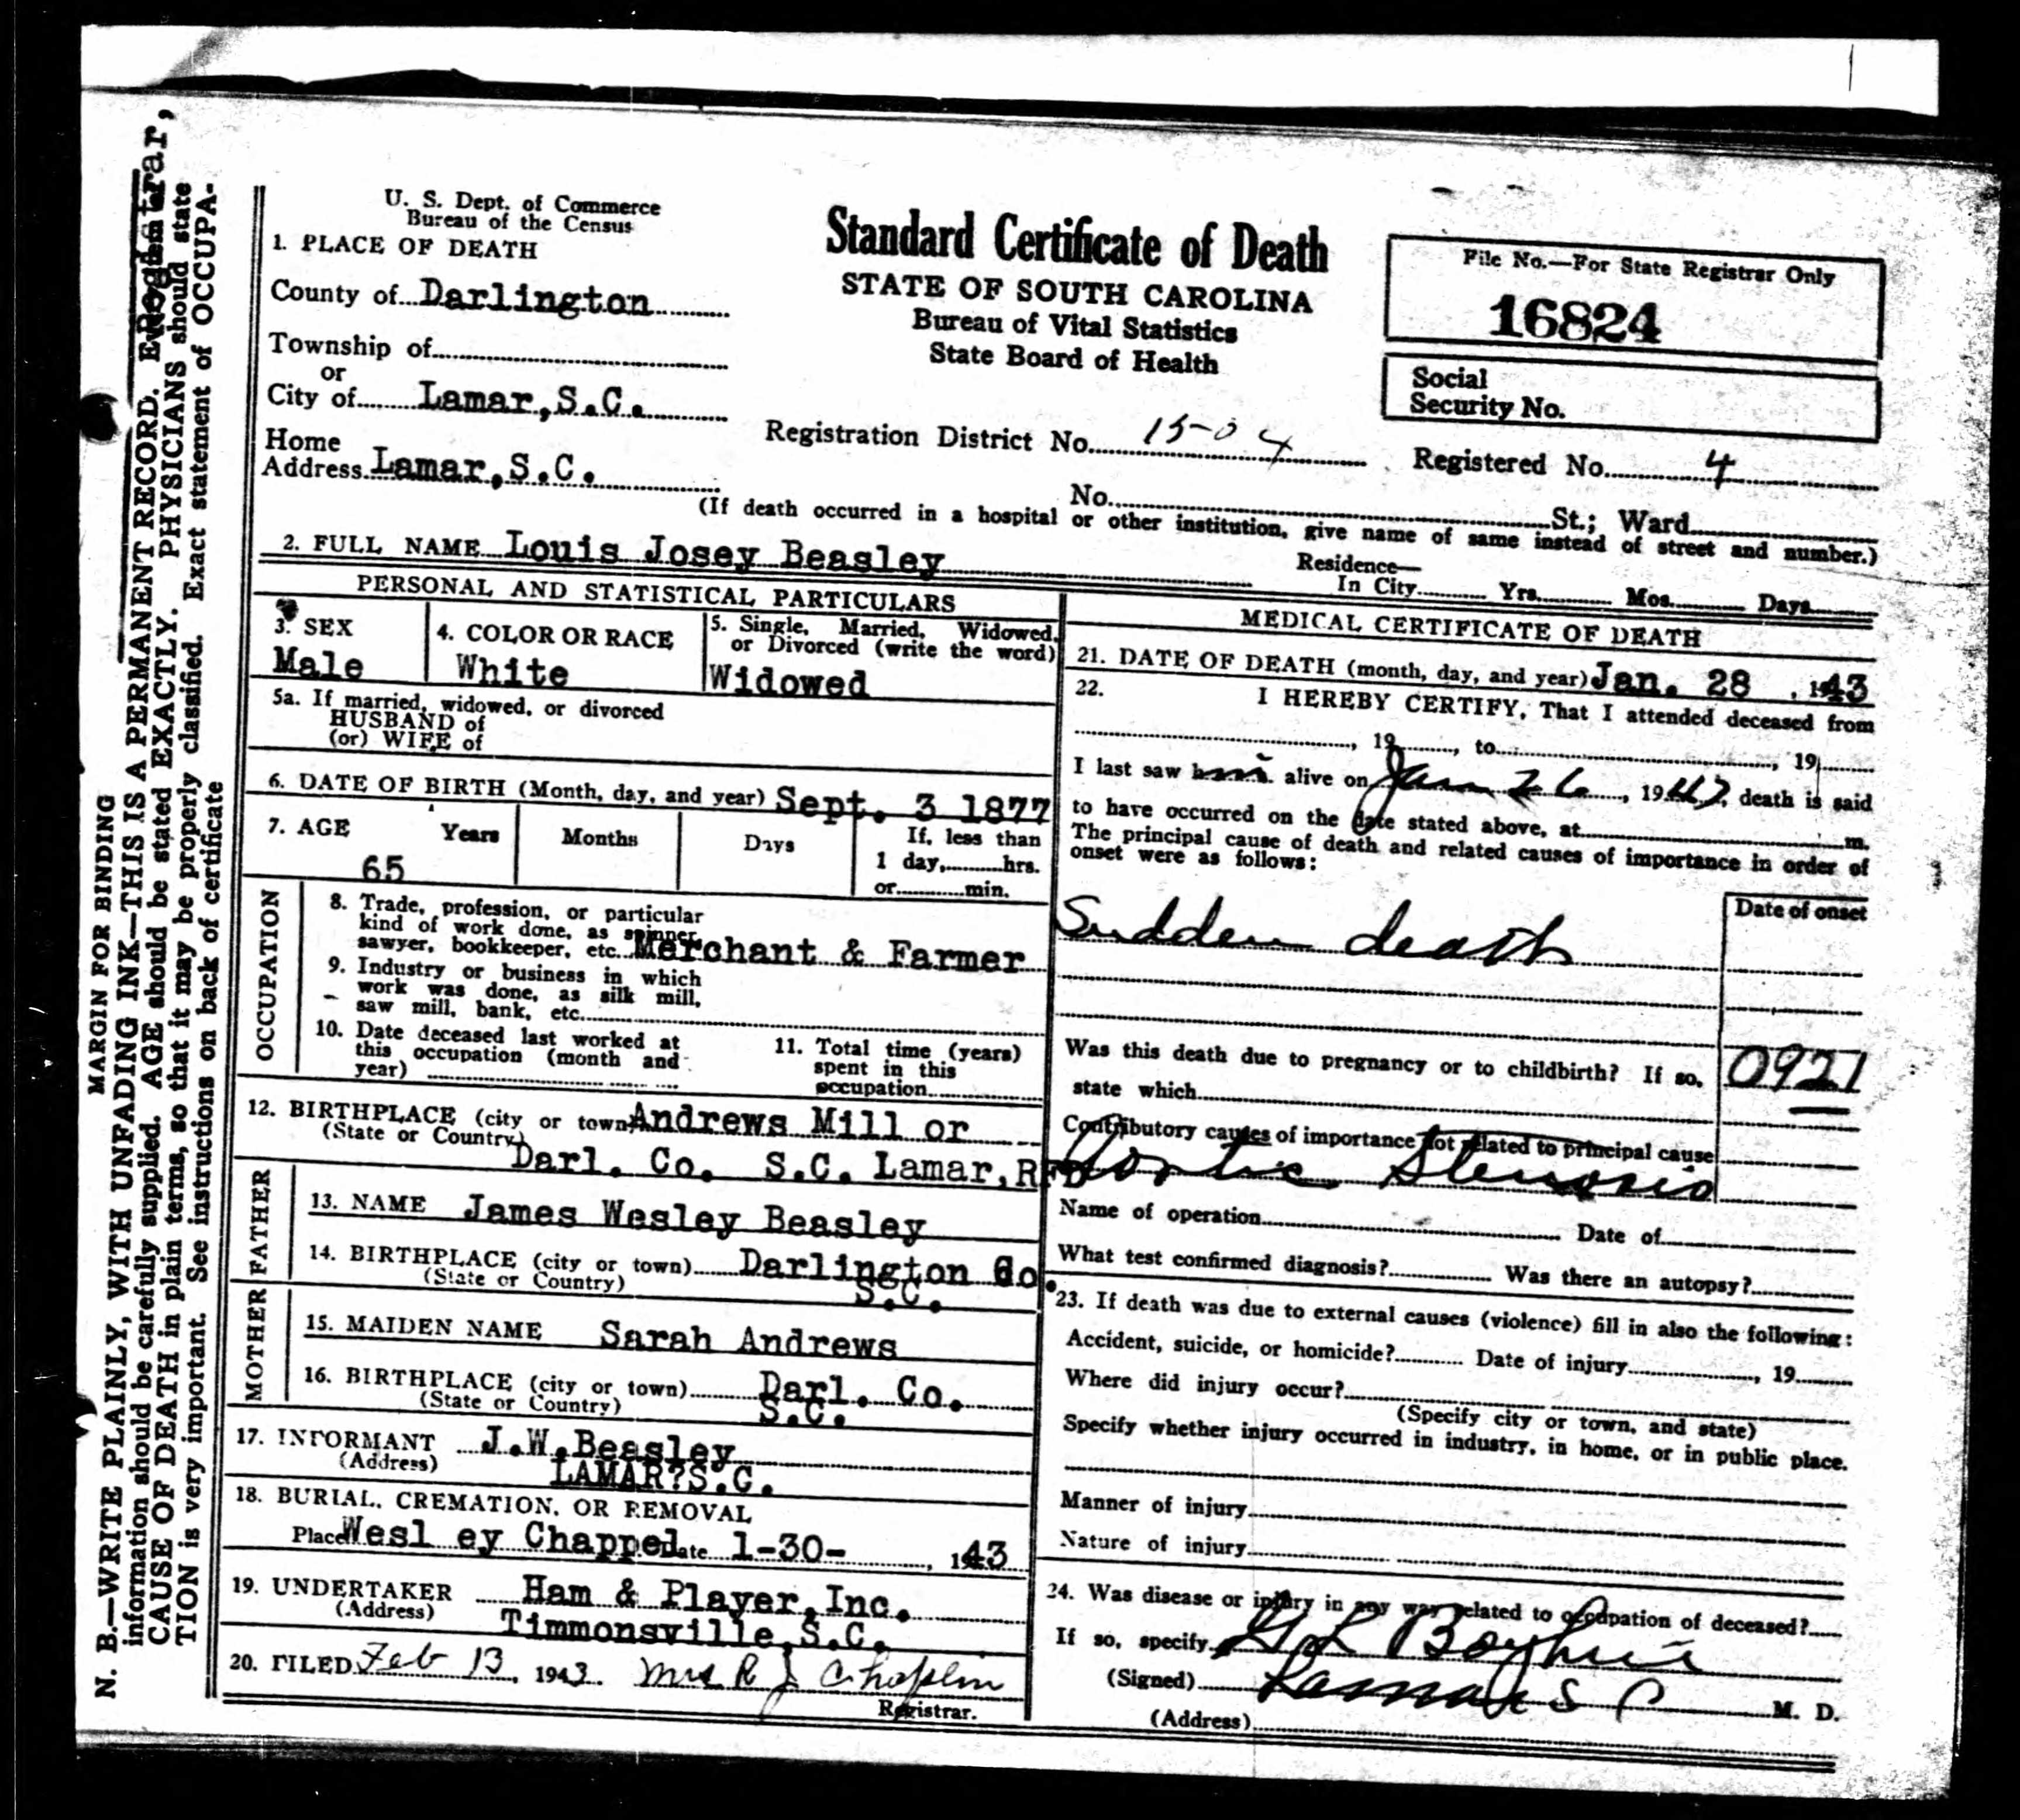 U. S. Dept. of Commerce
Bureau of the Census
1. PLACE OF DEATH
County of Darlington
Township of
or
City of Lamar,S.C.
Home
Address Lamar,S.C.
Standard Certificate of Death
STATE OF SOUTH CAROLINA
Bureau of Vital Statistics
State Board of Health
File No.—For State Registrar Only
16824
Social
Security No.
Registration District No. 15-04 Registered No. 4
No. St.; Ward
(If death occurred in a hospital or other institution, give name of same instead of street and number.)
2. FULL NAME Louis Josey Beasley
Residence—
In City Yrs. Mos. Days
PERSONAL AND STATISTICAL PARTICULARS
3. SEX
Male
4. COLOR OR RACE
White
5. Single, Married, Widowed,
or Divorced (write the word)
Widowed
5a. If married, widowed, or divorced
HUSBAND of
(or) WIFE of
6. DATE OF BIRTH (Month, day, and year) Sept. 3 1877
7. AGE Years Months Days If less than
1 day, hrs.
or min.
65
OCCUPATION
8. Trade, profession, or particular
kind of work done, as spinner,
sawyer, bookkeeper, etc. Merchant & Farmer
9. Industry or business in which
work was done, as silk mill,
saw mill, bank, etc.
10. Date deceased last worked at
this occupation (month and
year)
11. Total time (years)
spent in this
occupation
12. BIRTHPLACE (city or town) Andrews Mill or
(State or Country)
Darl. Co. S.C. Lamar,RFD
FATHER
13. NAME James Wesley Beasley
14. BIRTHPLACE (city or town) Darlington Co.
(State or Country) S.C.
MOTHER
15. MAIDEN NAME Sarah Andrews
16. BIRTHPLACE (city or town) Darl. Co.
(State or Country) S.C.
17. INFORMANT J.W.Beasley
(Address) LAMAR?S.C.
18. BURIAL, CREMATION, OR REMOVAL
Place Wesl ey Chappel Date 1-30- , 1943
19. UNDERTAKER Ham & Player,Inc.
(Address) Timmonsville,S.C.
20. FILED Feb 13, 1943. Mrs R J Chaplin
Registrar.
MEDICAL CERTIFICATE OF DEATH
21. DATE OF DEATH (month, day, and year) Jan. 28 , 1943
22. I HEREBY CERTIFY, That I attended deceased from
, 19 , to , 19
I last saw him alive on Jan 26 , 1943, death is said
to have occurred on the date stated above, at m.
The principal cause of death and related causes of importance in order of
onset were as follows:
Date of onset
Sudden death
Was this death due to pregnancy or to childbirth? If so,
state which
0921
Contributory causes of importance not related to principal cause
Aortic Stenosis
Name of operation Date of
What test confirmed diagnosis? Was there an autopsy?
23. If death was due to external causes (violence) fill in also the following:
Accident, suicide, or homicide? Date of injury , 19
Where did injury occur?
(Specify city or town, and state)
Specify whether injury occurred in industry, in home, or in public place.
Manner of injury
Nature of injury
24. Was disease or injury in any way related to occupation of deceased?
If so, specify
(Signed) M. D.
Lamar S C
(Address)
MARGIN FOR BINDING
N. B.—WRITE PLAINLY, WITH UNFADING INK—THIS IS A PERMANENT RECORD.
information should be carefully supplied. AGE should be stated EXACTLY. PHYSICIANS should state
CAUSE OF DEATH in plain terms, so that it may be properly classified. Exact statement of OCCUPA-
TION is very important. See instructions on back of certificate